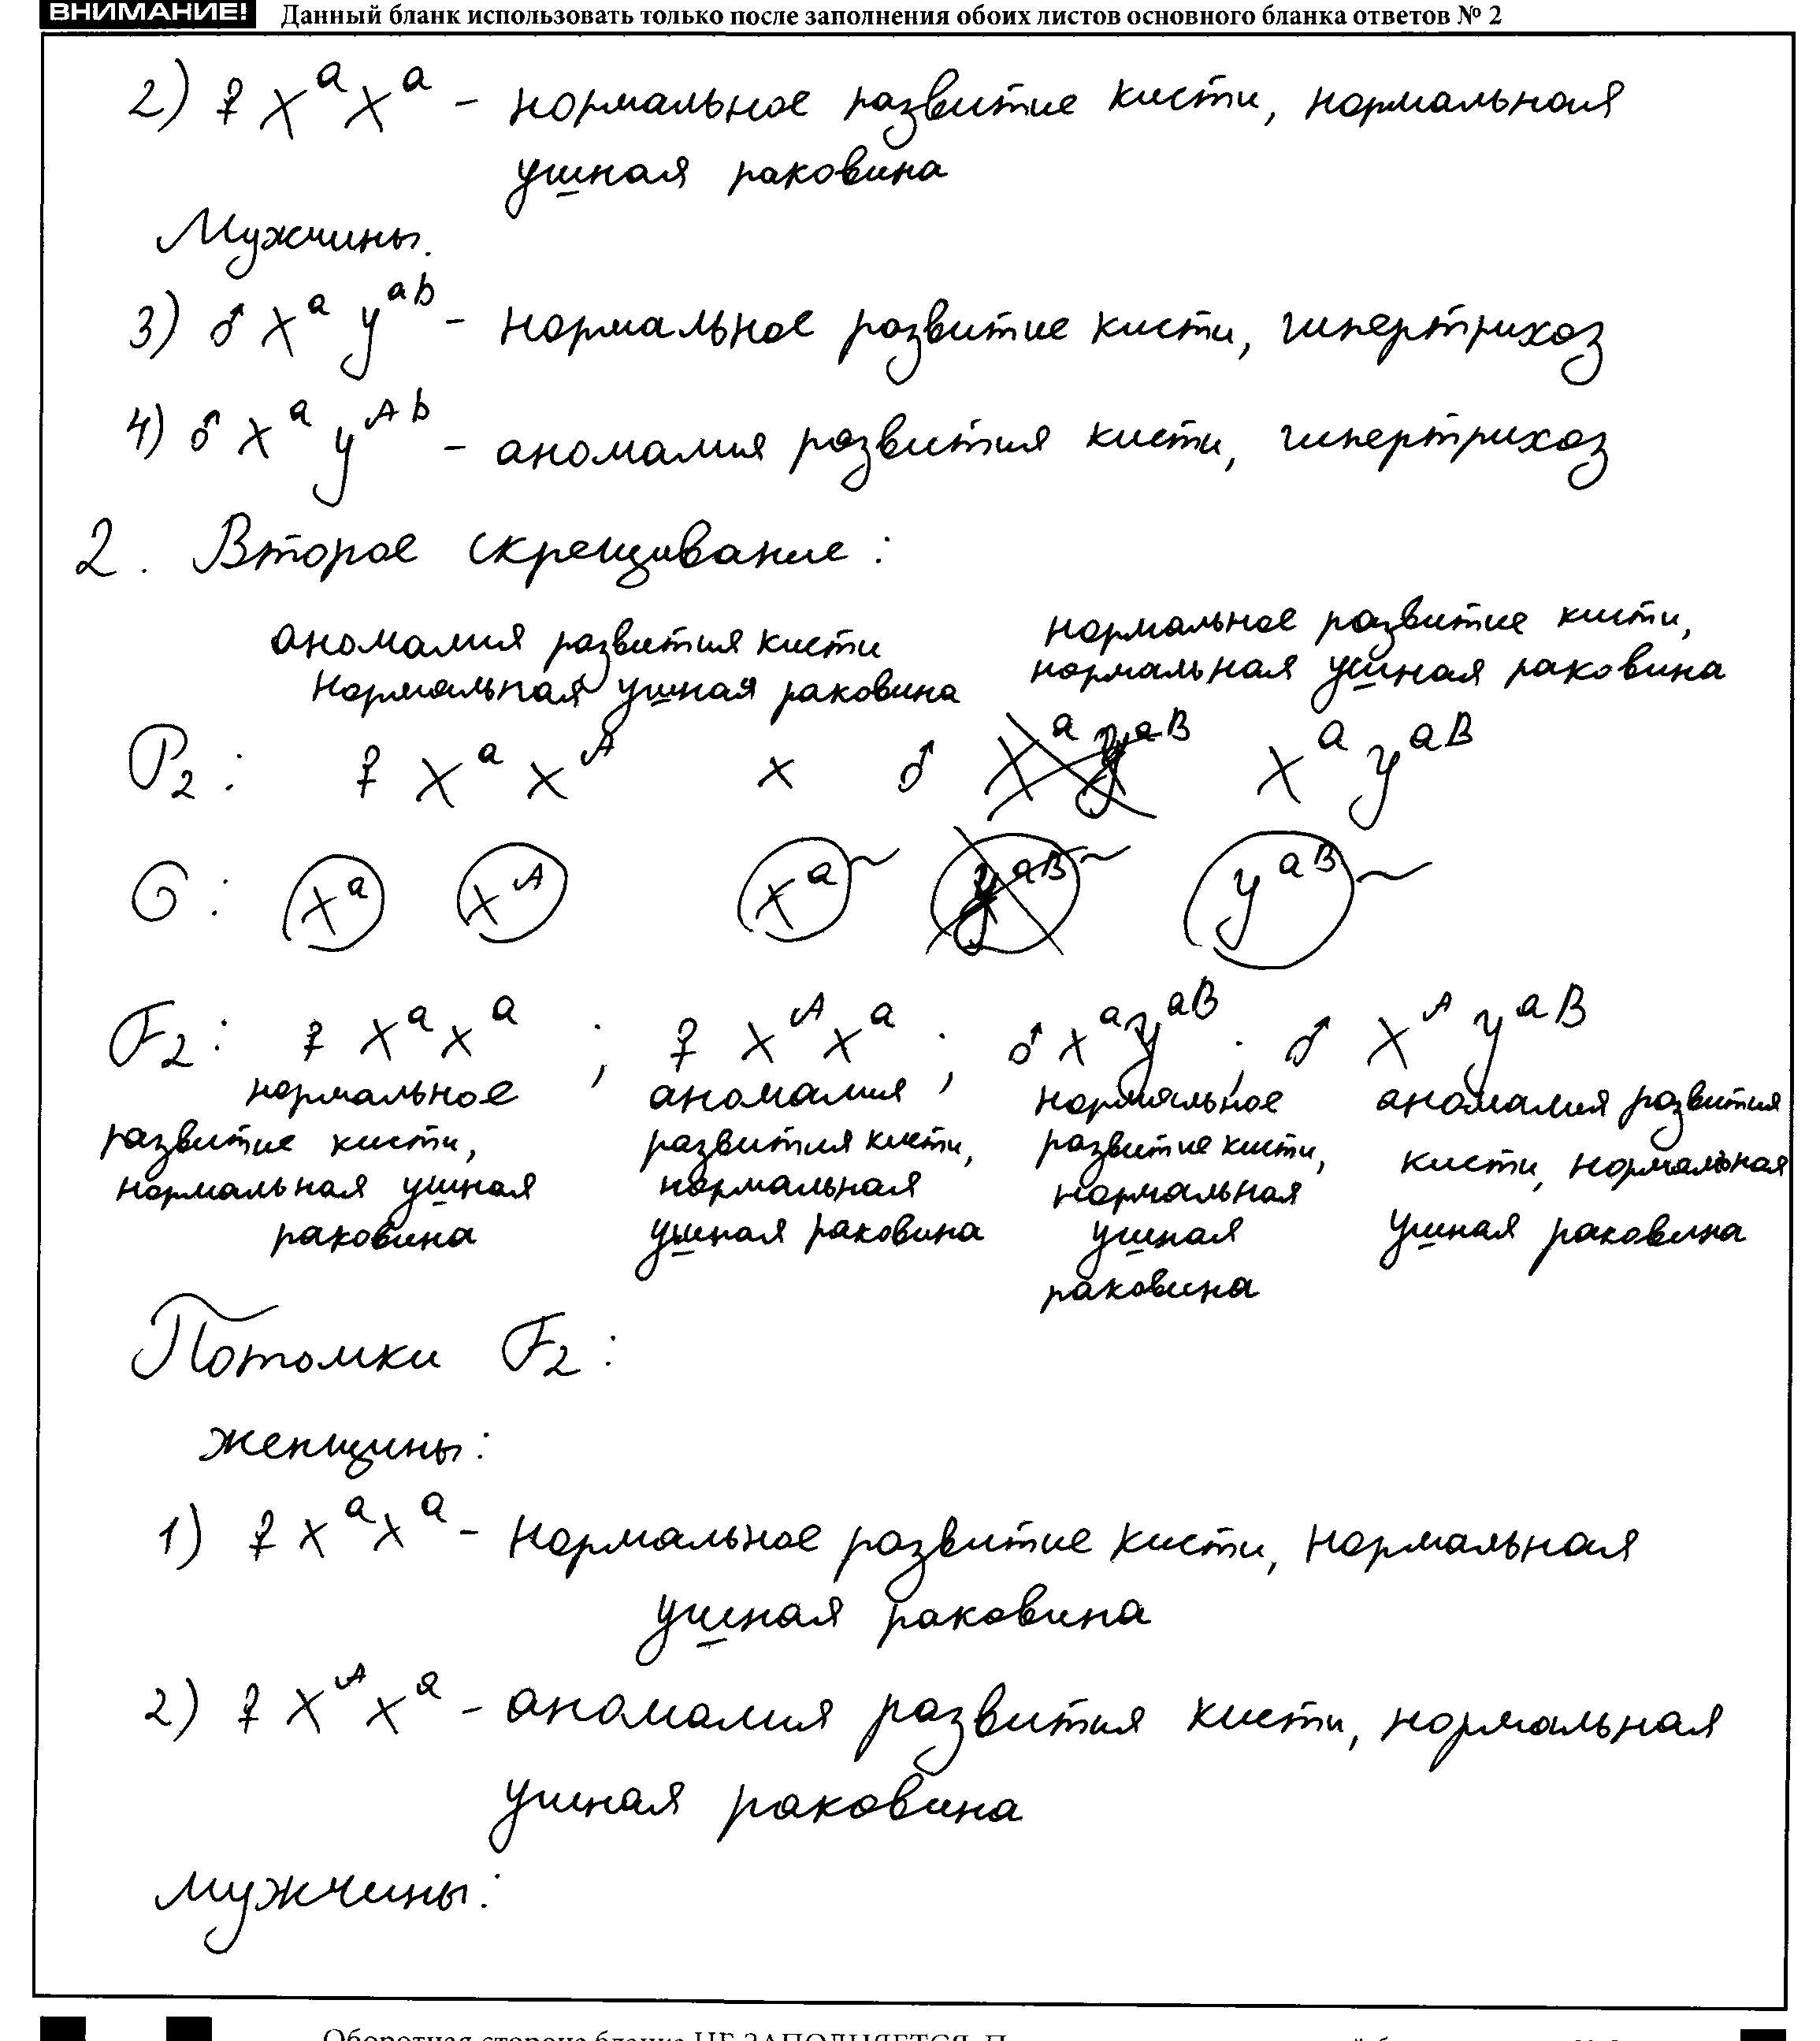 ВНИМАНИЕ! Данный бланк использовать только после заполнения обоих листов основного бланка ответов № 2
2) ♀ X^a X^a - нормальное развитие кисти, нормальная
ушная раковина
Мужчины.
3) ♂ X^a y^ab - нормальное развитие кисти, гипертрихоз
4) ♂ X^a y^Ab - аномалия развития кисти, гипертрихоз
2. Второе скрещивание:
аномалия развития кисти нормальное развитие кисти,
нормальная ушная раковина нормальная ушная раковина
P2: ♀ X^a X^A x ♂ X^a y^aB X^a y^aB
G: X^a X^A X^a y^aB y^aB
F2: ♀ X^a X^a ; ♀ X^A X^a ; ♂ X^a y^aB ; ♂ X^A y^aB
нормальное аномалия нормальное аномалия развития
развитие кисти, развития кисти, развитие кисти, кисти, нормальная
нормальная ушная нормальная нормальная ушная раковина
раковина ушная раковина ушная
раковина
Потомки F2:
женщины:
1) ♀ X^a X^a - нормальное развитие кисти, нормальная
ушная раковина
2) ♀ X^A X^a - аномалия развития кисти, нормальная
ушная раковина
мужчины:
Оборотная сторона бланка НЕ ЗАПОЛНЯЕТСЯ.